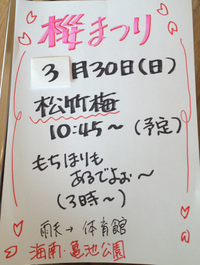 桜まつり
3月30日(日)
松竹梅
10:45～(予定)
もちほりも
あるでよぉ～
(3時～)
雨天→体育館
海南・亀池公園